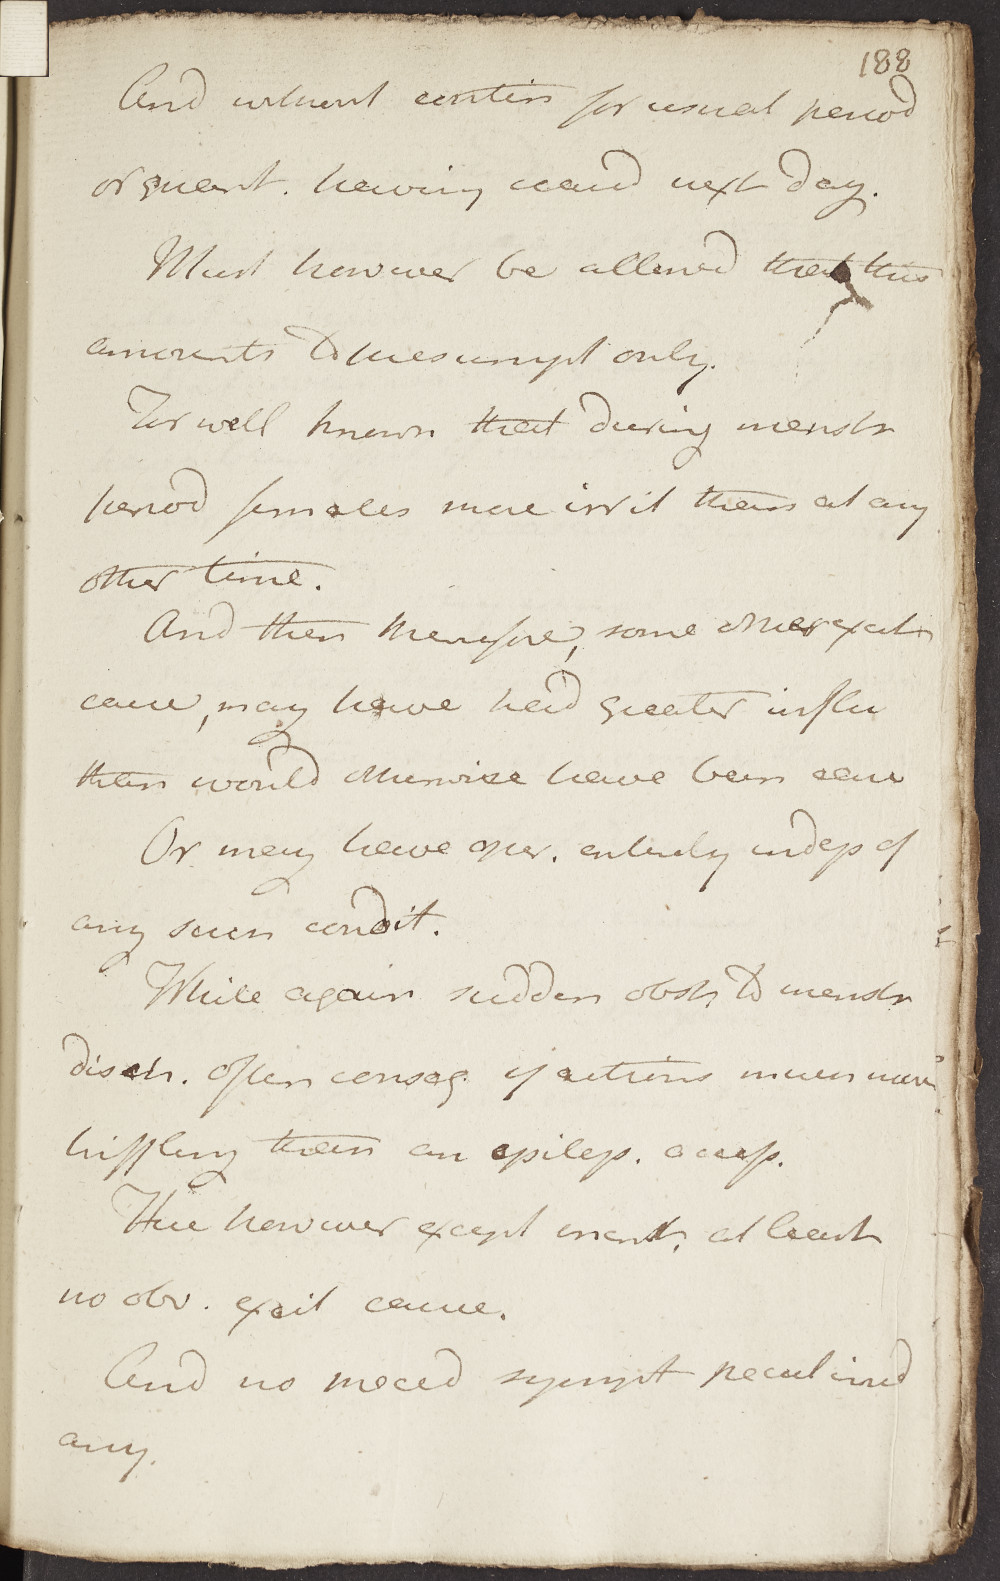 188
And without contin for usual period
or quant. having ceas'd next day.
Must however be allowed that this
amounts to presumpt only.
For well known that during menstr
period females more irrit than at any
other time.
And then therefore, some other excit
cause, may have had greater influ
than would otherwise have been case
Or may have oper. entirely indep of
any such condit.
While again sudden obstr to menstr
disch. often conseq. of actions much more
trifling than an epilep. access.
Here however except menst. at least
no obv. excit cause.
And no preced sympt peculiar'd
any.